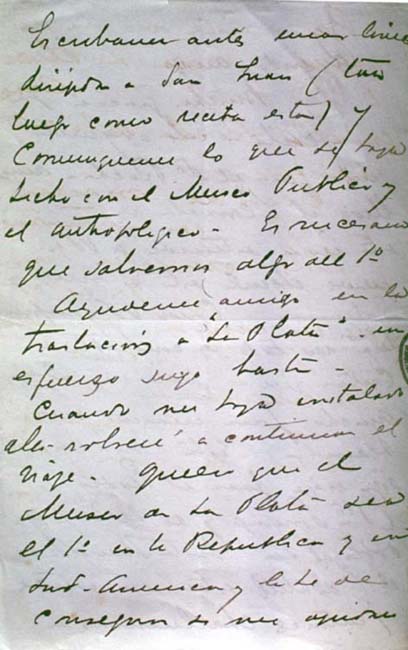 Escribame antes unas lineas
dirijida a San Juan (tan
luego como reciba esta) y
Comuniqueme lo que se haya
hecho con el Museo Publico y
el antropologico - Es necesario
que salvemos algo del 1º
Ayudeme amigo en la
traslacion a "La Plata" un
esfuerzo suyo basta -
Cuando me haya instalado
alli volveré a continuar el
viaje - Quiero que el
Museo de La Plata sea
el 1º en la Republica y en
Sud-America y lo he de
conseguir si me ayudan